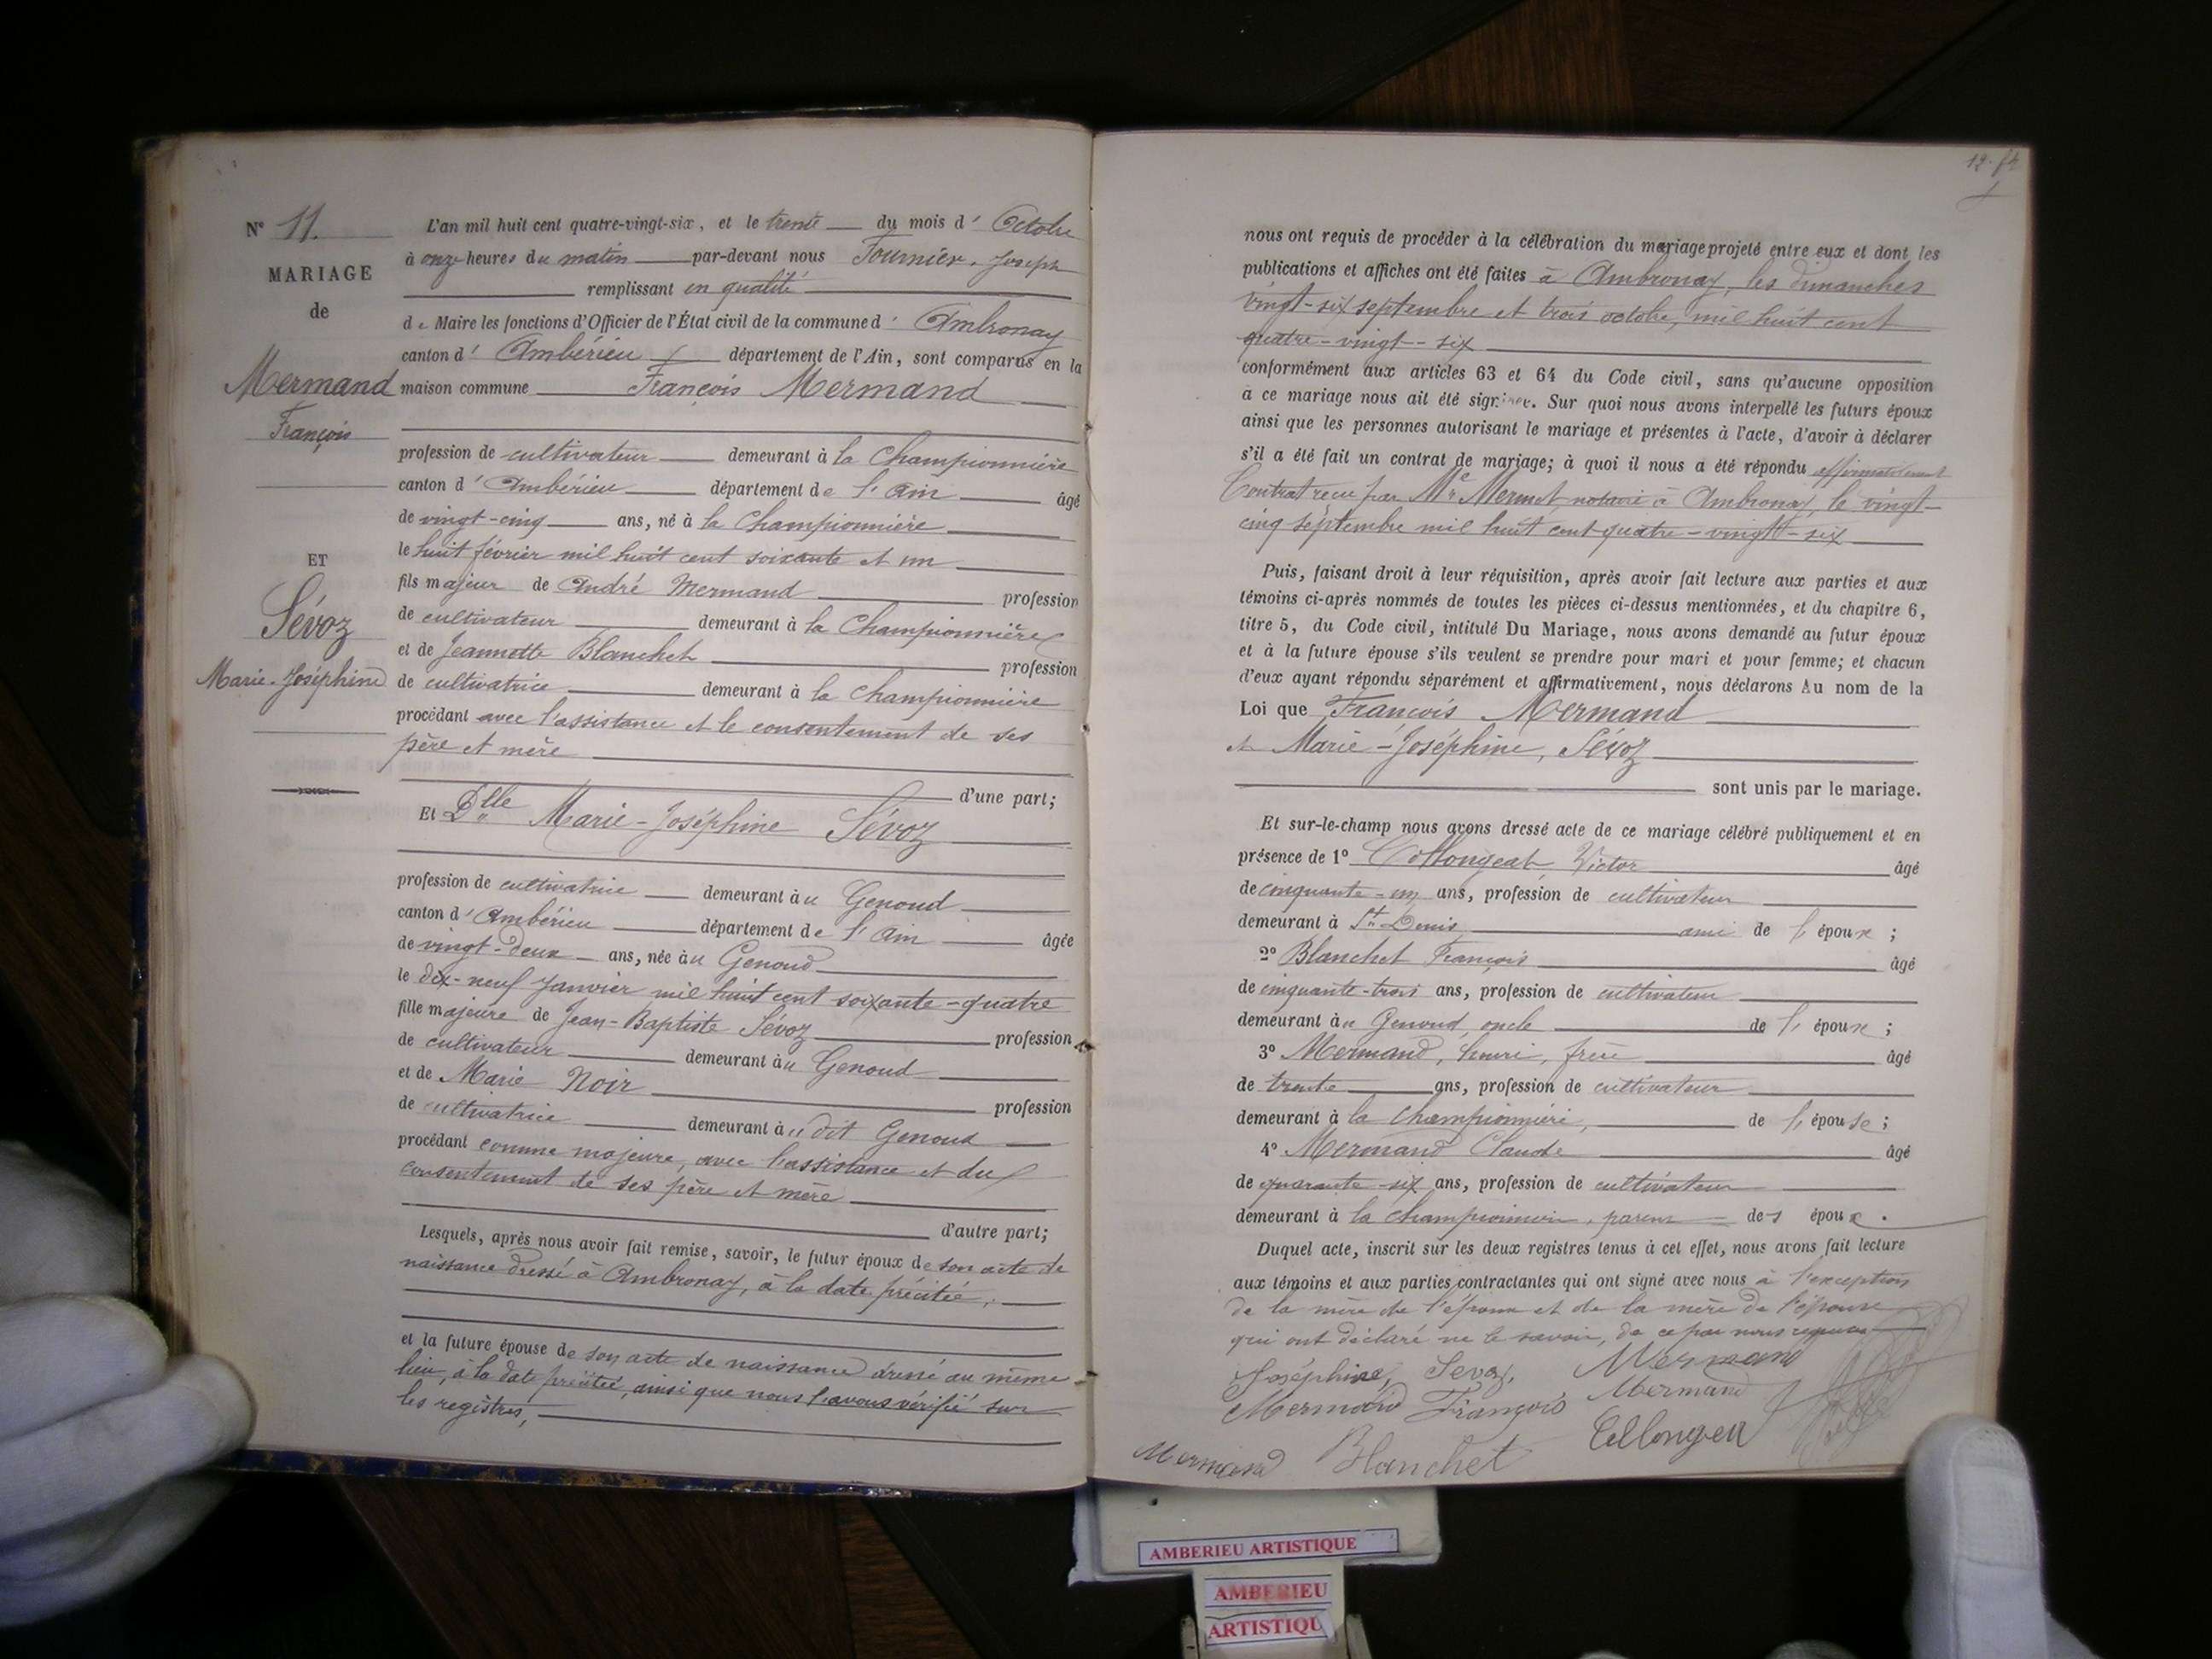 N° 11.
MARIAGE
de
Mermand
François
ET
Sévoz
Marie-Joséphine
L'an mil huit cent quatre-vingt-six, et le trente du mois d' Octobre
à onze heures du matin par-devant nous Fournier, Joseph
remplissant en qualité
de Maire les fonctions d'Officier de l'État civil de la commune d' Ambronay
canton d' Ambérieu département de l'Ain, sont comparus en la
maison commune François Mermand
profession de cultivateur demeurant à la Championnière
canton d' Ambérieu département de l'Ain âgé
de vingt-cinq ans, né à la Championnière
le huit février mil huit cent soixante et un
fils majeur de André Mermand profession
de cultivateur demeurant à la Championnière
et de Jeannette Blanchet profession
de cultivatrice demeurant à la Championnière
procédant avec l'assistance et le consentement de ses
père et mère
d'une part;
Et Dlle Marie-Joséphine Sévoz
profession de cultivatrice demeurant au Genoud
canton d' Ambérieu département de l'Ain âgée
de vingt-deux ans, née au Genoud
le dix-neuf Janvier mil huit cent soixante-quatre
fille majeure de Jean-Baptiste Sévoz profession
de cultivateur demeurant au Genoud
et de Marie Noir profession
de cultivatrice demeurant au dit Genoud
procédant comme majeure, avec l'assistance et du
consentement de ses père et mère
d'autre part;
Lesquels, après nous avoir fait remise, savoir, le futur époux de son acte de
naissance dressé à Ambronay, à la date précitée,
et la future épouse de son acte de naissance dressé au même
lieu, à la date précitée, ainsi que nous l'avons vérifié sur
les registres,
nous ont requis de procéder à la célébration du mariage projeté entre eux et dont les
publications et affiches ont été faites à Ambronay, les dimanches
vingt-six septembre et trois octobre, mil huit cent
quatre-vingt-six
conformément aux articles 63 et 64 du Code civil, sans qu'aucune opposition
à ce mariage nous ait été signifiée. Sur quoi nous avons interpellé les futurs époux
ainsi que les personnes autorisant le mariage et présentes à l'acte, d'avoir à déclarer
s'il a été fait un contrat de mariage; à quoi il nous a été répondu affirmativement
Contrat reçu par Me Mermet, notaire à Ambronay, le vingt-
cinq septembre mil huit cent quatre-vingt-six
Puis, faisant droit à leur réquisition, après avoir fait lecture aux parties et aux
témoins ci-après nommés de toutes les pièces ci-dessus mentionnées, et du chapitre 6,
titre 5, du Code civil, intitulé Du Mariage, nous avons demandé au futur époux
et à la future épouse s'ils veulent se prendre pour mari et pour femme; et chacun
d'eux ayant répondu séparément et affirmativement, nous déclarons Au nom de la
Loi que François Mermand
et Marie-Joséphine, Sévoz
sont unis par le mariage.
Et sur-le-champ nous avons dressé acte de ce mariage célébré publiquement et en
présence de 1° Collongeat Victor âgé
de cinquante-un ans, profession de cultivateur
demeurant à St Denis ami de l'époux;
2° Blanchet François âgé
de cinquante-trois ans, profession de cultivateur
demeurant au Genoud, oncle de l'époux;
3° Mermand, henri, frère âgé
de trente ans, profession de cultivateur
demeurant à la Championnière, de l'épouse;
4° Mermand Claude âgé
de quarante-six ans, profession de cultivateur
demeurant à la Championnière, parent des époux.
Duquel acte, inscrit sur les deux registres tenus à cet effet, nous avons fait lecture
aux témoins et aux parties contractantes qui ont signé avec nous à l'exception
de la mère de l'époux et de la mère de l'épouse
qui ont déclaré ne le savoir, de ce par nous requises
Joséphine, Sevoz, Mermand
Mermand François Mermand
Mermand Blanchet
AMBERIEU ARTISTIQUE
AMBERIEU
ARTISTIQU